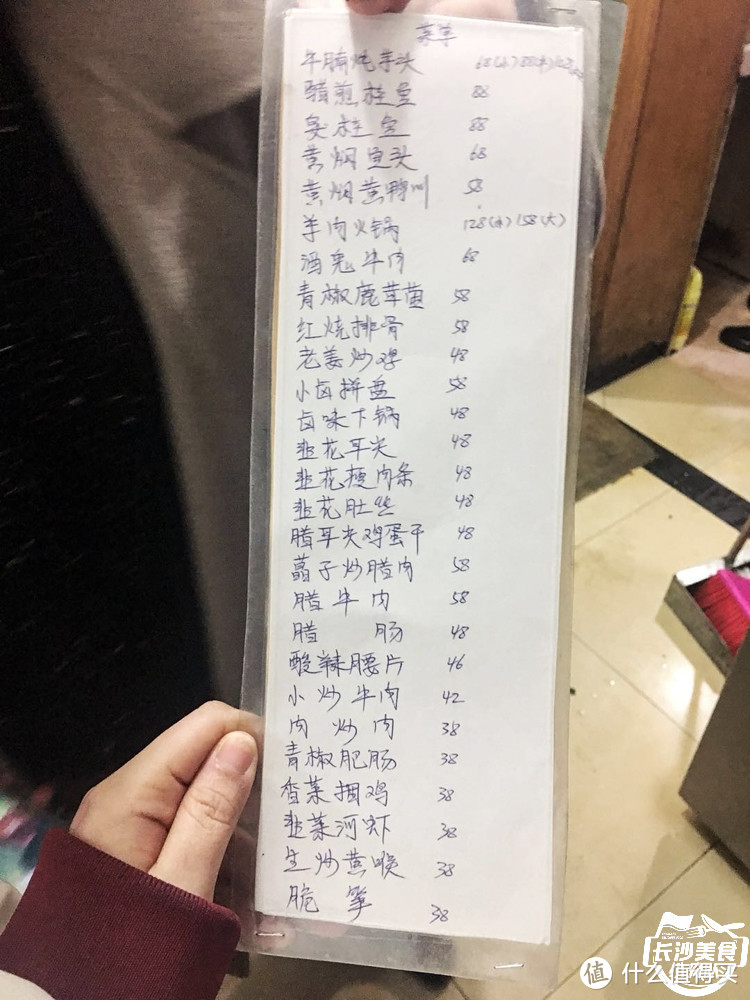 菜单
牛腩炖芋头 68(小) 88(中)
醋煎桂鱼 88
臭桂鱼 88
黄焖鱼头 68
黄焖黄鸭叫 58
羊肉火锅 128(小) 158(大)
酒鬼牛肉 68
青椒鹿茸菌 58
红烧排骨 58
老姜炒鸡 48
小卤拼盘 58
卤味下锅 48
韭花耳尖 48
韭花瘦肉条 48
韭花肚丝 48
腊耳尖鸡蛋干 48
藠子炒腊肉 58
腊牛肉 58
腊肠 48
酸辣腰片 46
小炒牛肉 42
肉炒肉 38
青椒肥肠 38
香菜捆鸡 38
韭菜河虾 38
生炒黄喉 38
脆笋 38
长沙美食
值 什么值得买